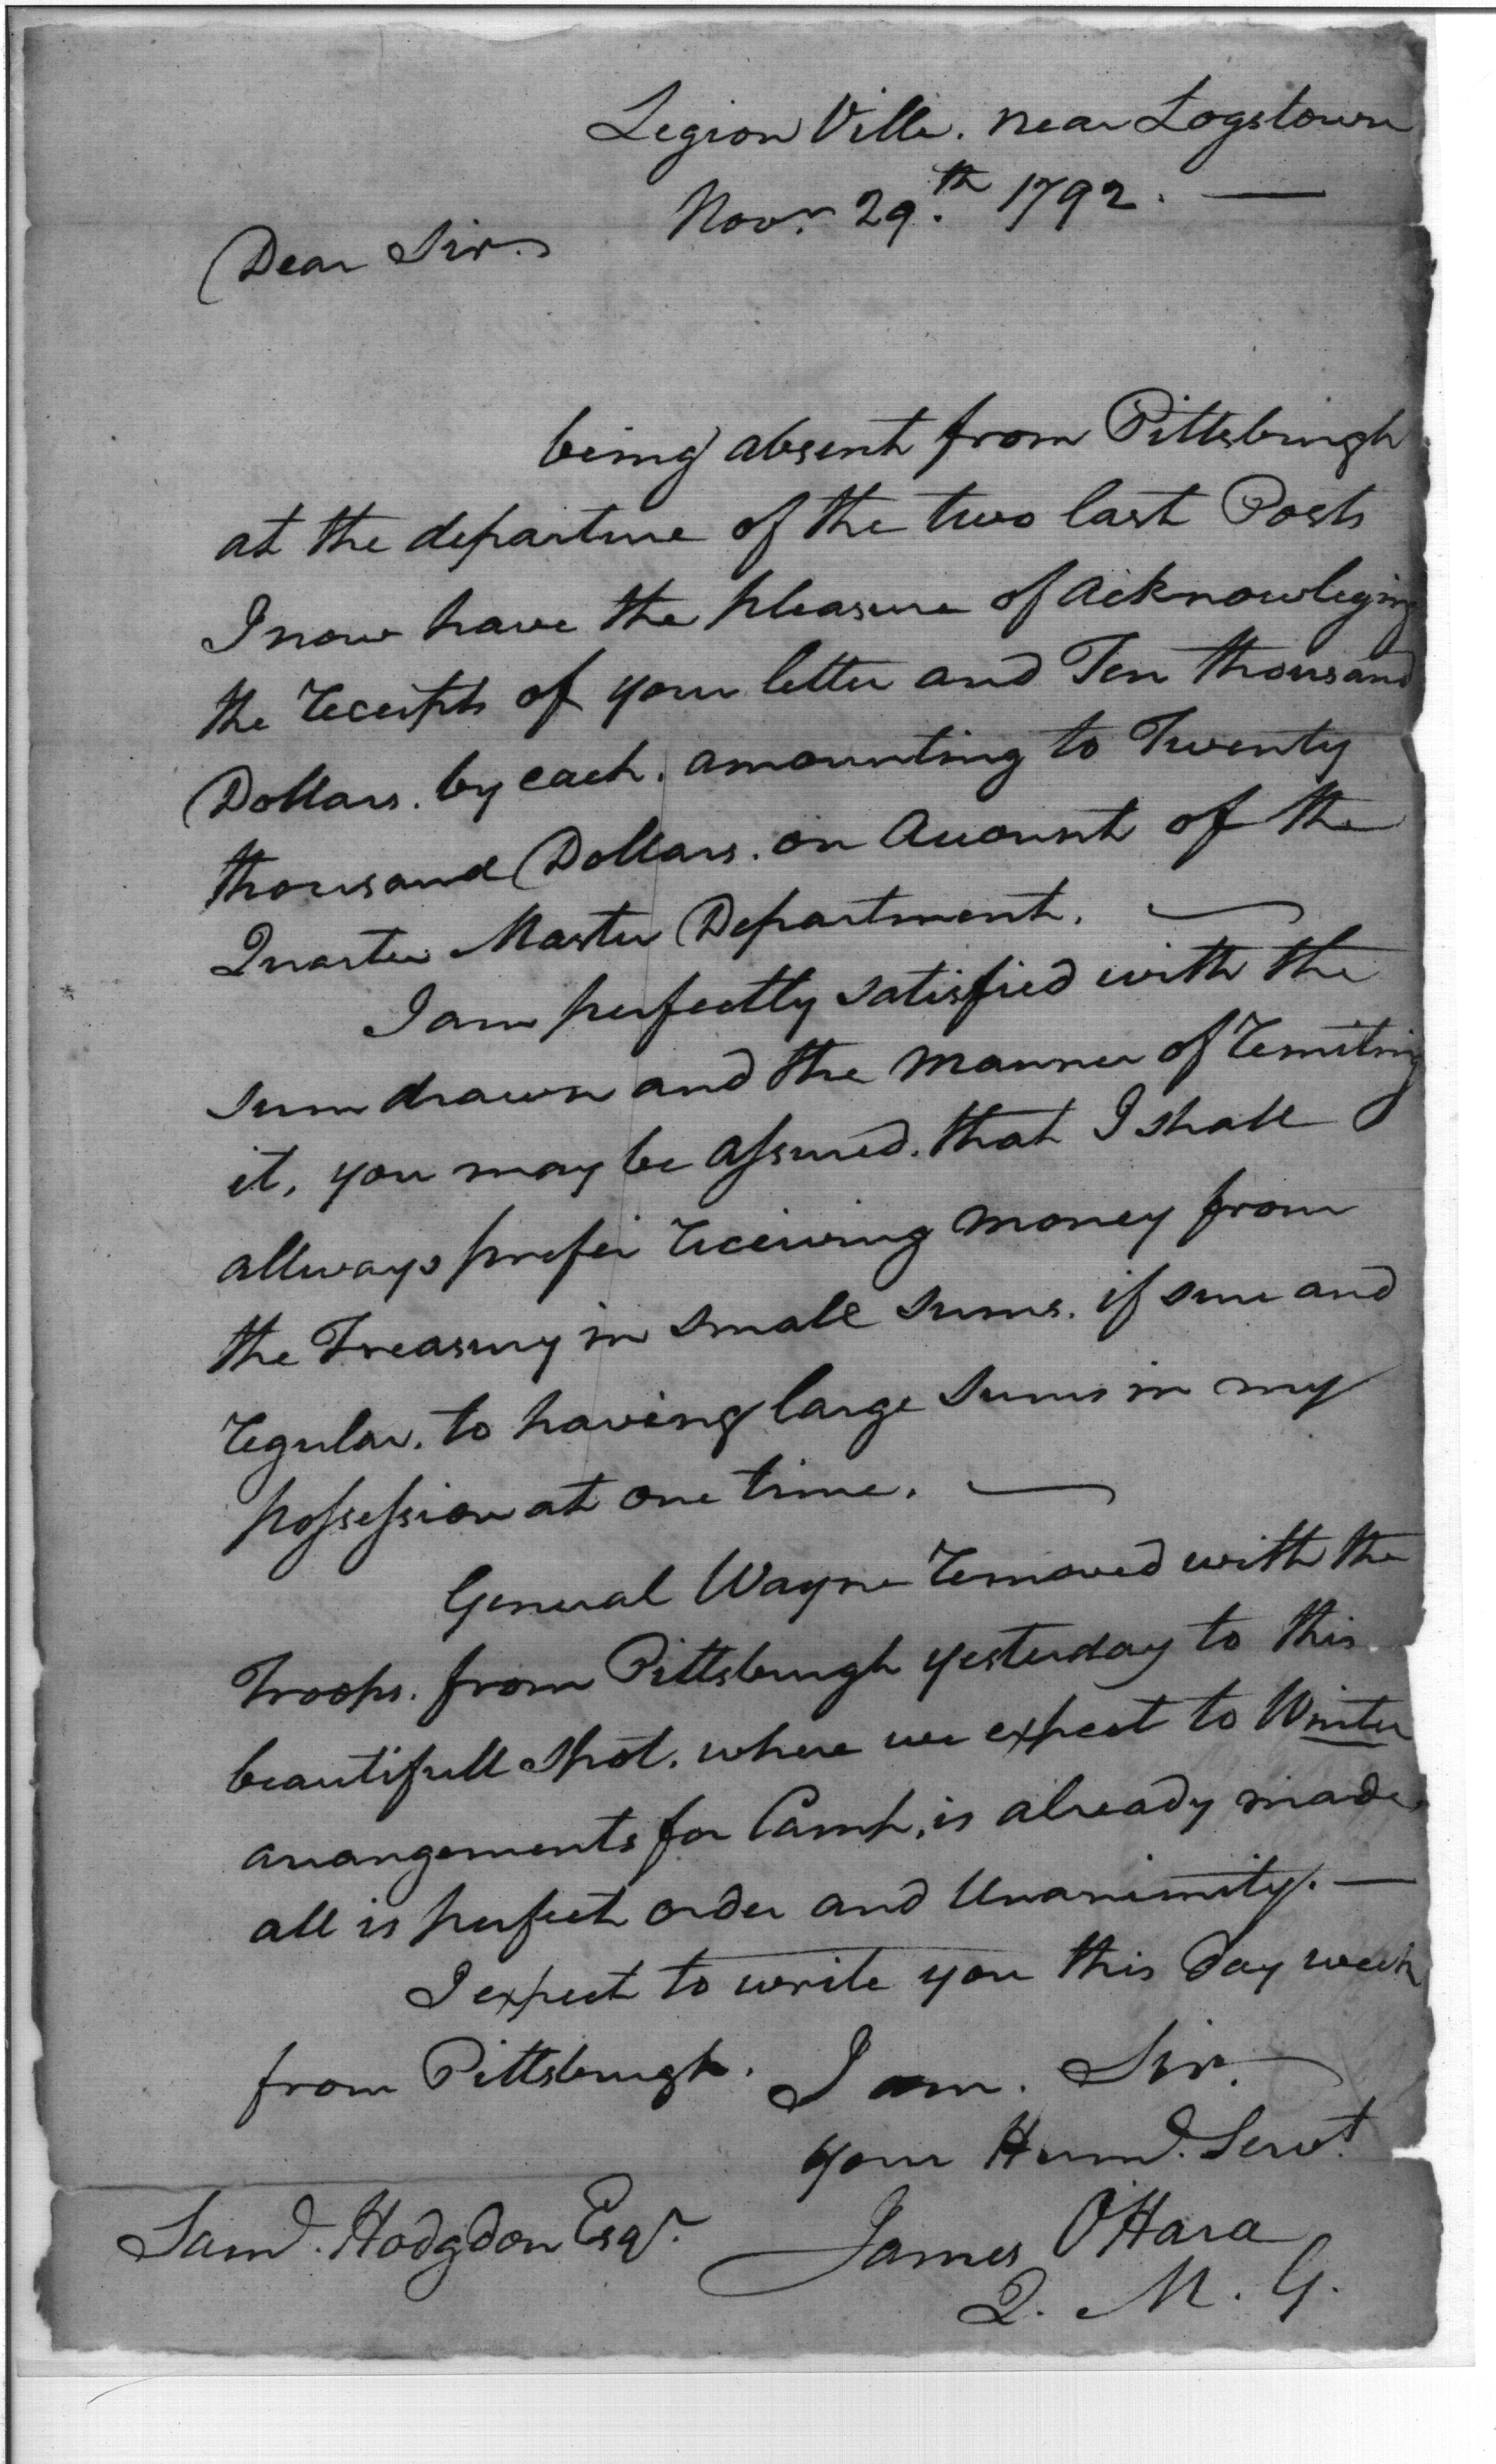 Legion Ville. near Logstown
Novr. 29.th 1792. —
Dear Sir.
being absent from Pittsburgh
at the departure of the two last Posts
I now have the pleasure of acknowleging
the receipts of your letter and Ten thousand
Dollars. by each. amounting to Twenty
thousand Dollars. on Account of the
Quarter Master Department. —
I am perfectly satisfied with the
sum drawn and the manner of remiting
it, you may be assured. that I shall
allways prefer receiving money from
the Treasury in small sums. if sure and
regular. to having large sums in my
possession at one time. —
General Wayne removed with the
Troops. from Pittsburgh yesterday to this
beautifull spot. where we expect to Winter
arangements for Camp, is already made
all is perfect order and Unanimity. —
I expect to write you this day week
from Pittsburgh. I am. Sir.
your Huml. Servt.
Saml. Hodgdon Esqr. James OHara
Q. M. G.